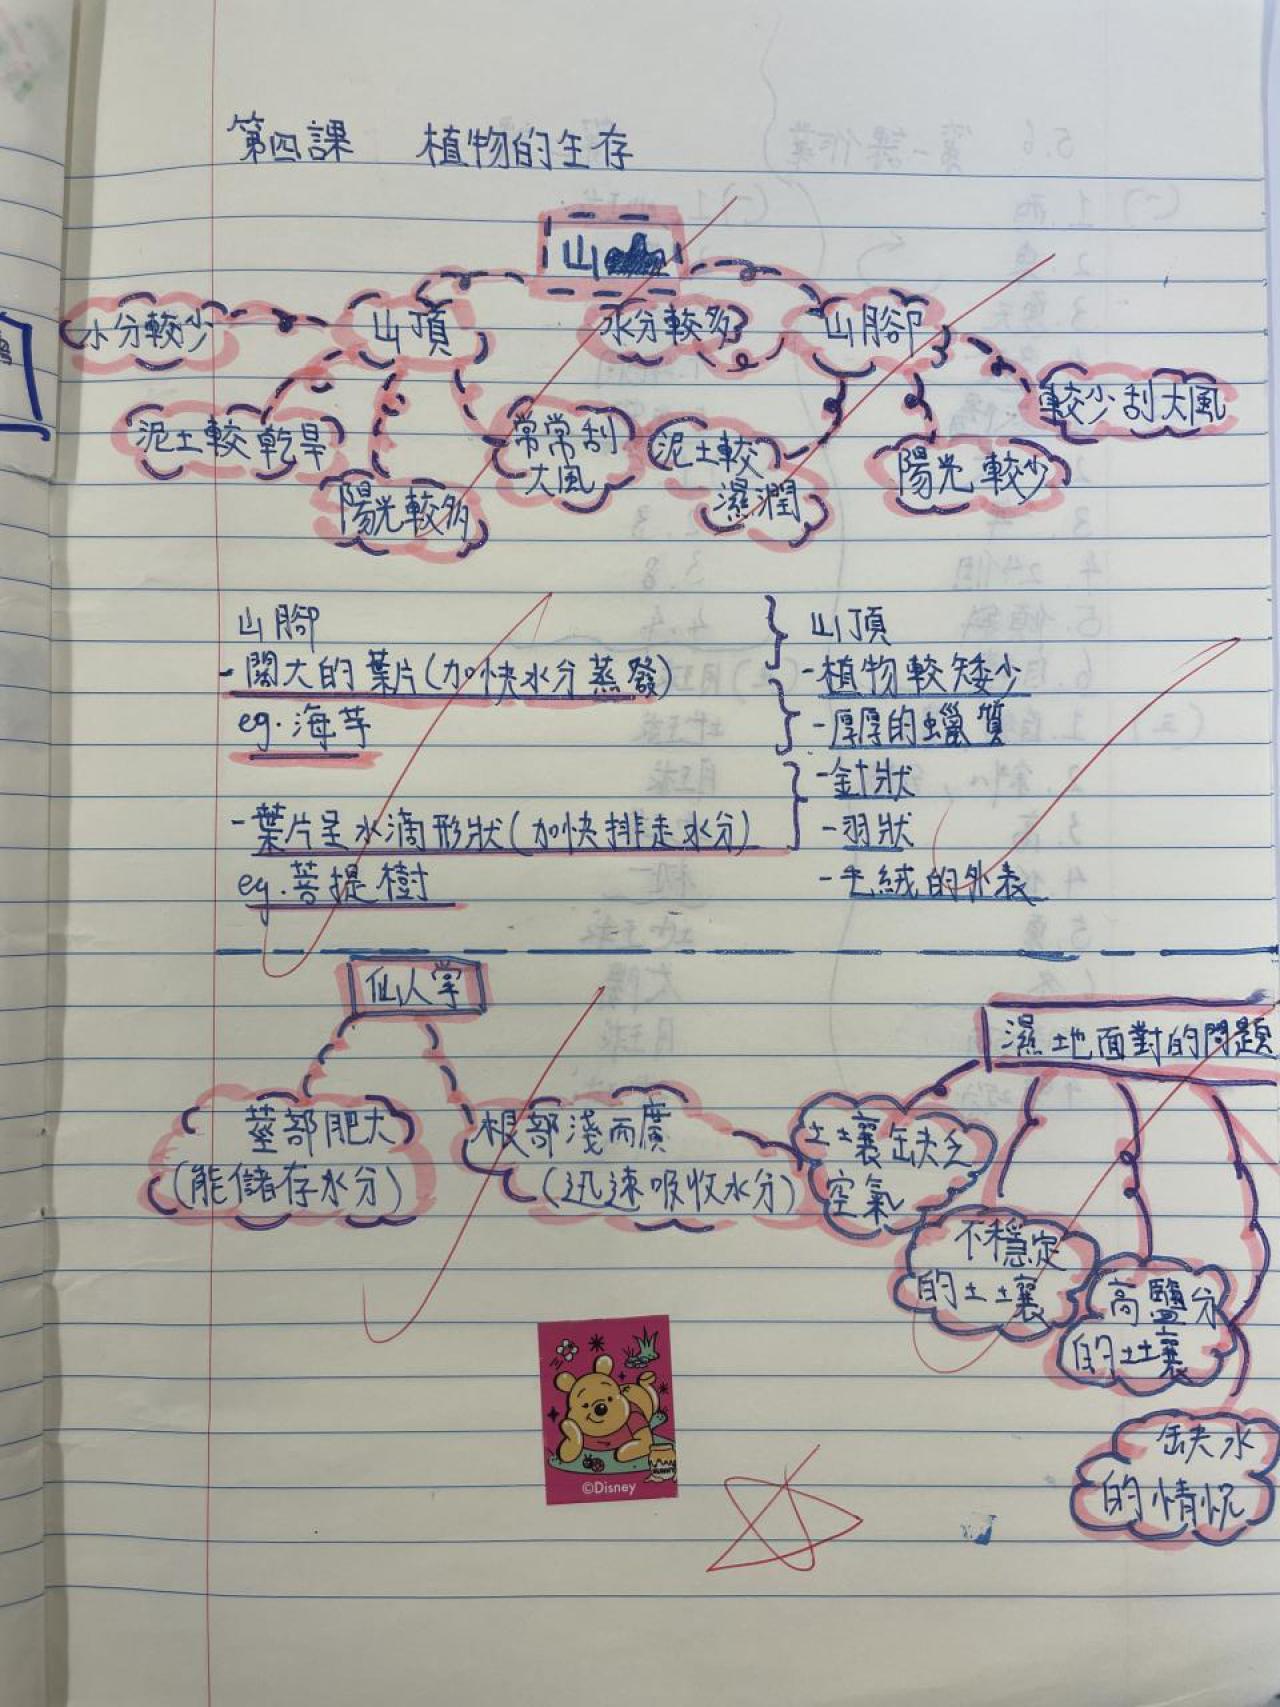 第四課 植物的生存
山
水分較少
山頂
水分較多
山腳
較少刮大風
泥土較乾旱
常常刮
大風
泥土較
濕潤
陽光較少
陽光較多
山腳
-闊大的葉片(加快水分蒸發)
eg.海芋
-葉片呈水滴形狀(加快排走水分)
eg.菩提樹
山頂
-植物較矮少
-厚厚的蠟質
-針狀
-羽狀
-毛絨的外表
仙人掌
莖部肥大
(能儲存水分)
根部淺而廣
(迅速吸收水分)
濕地面對的問題
土壤缺乏
空氣
不穩定
的土壤
高鹽分
的土壤
缺水
的情況
©Disney